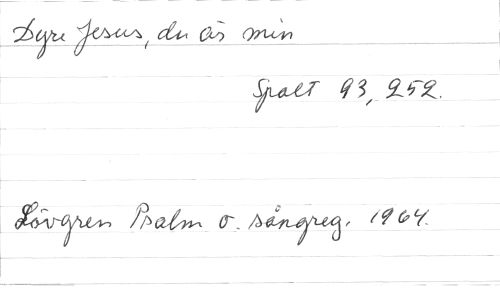 Dyre Jesus, du är min
Spalt 93, 252.
Lövgren Psalm o. sångreg. 1964.